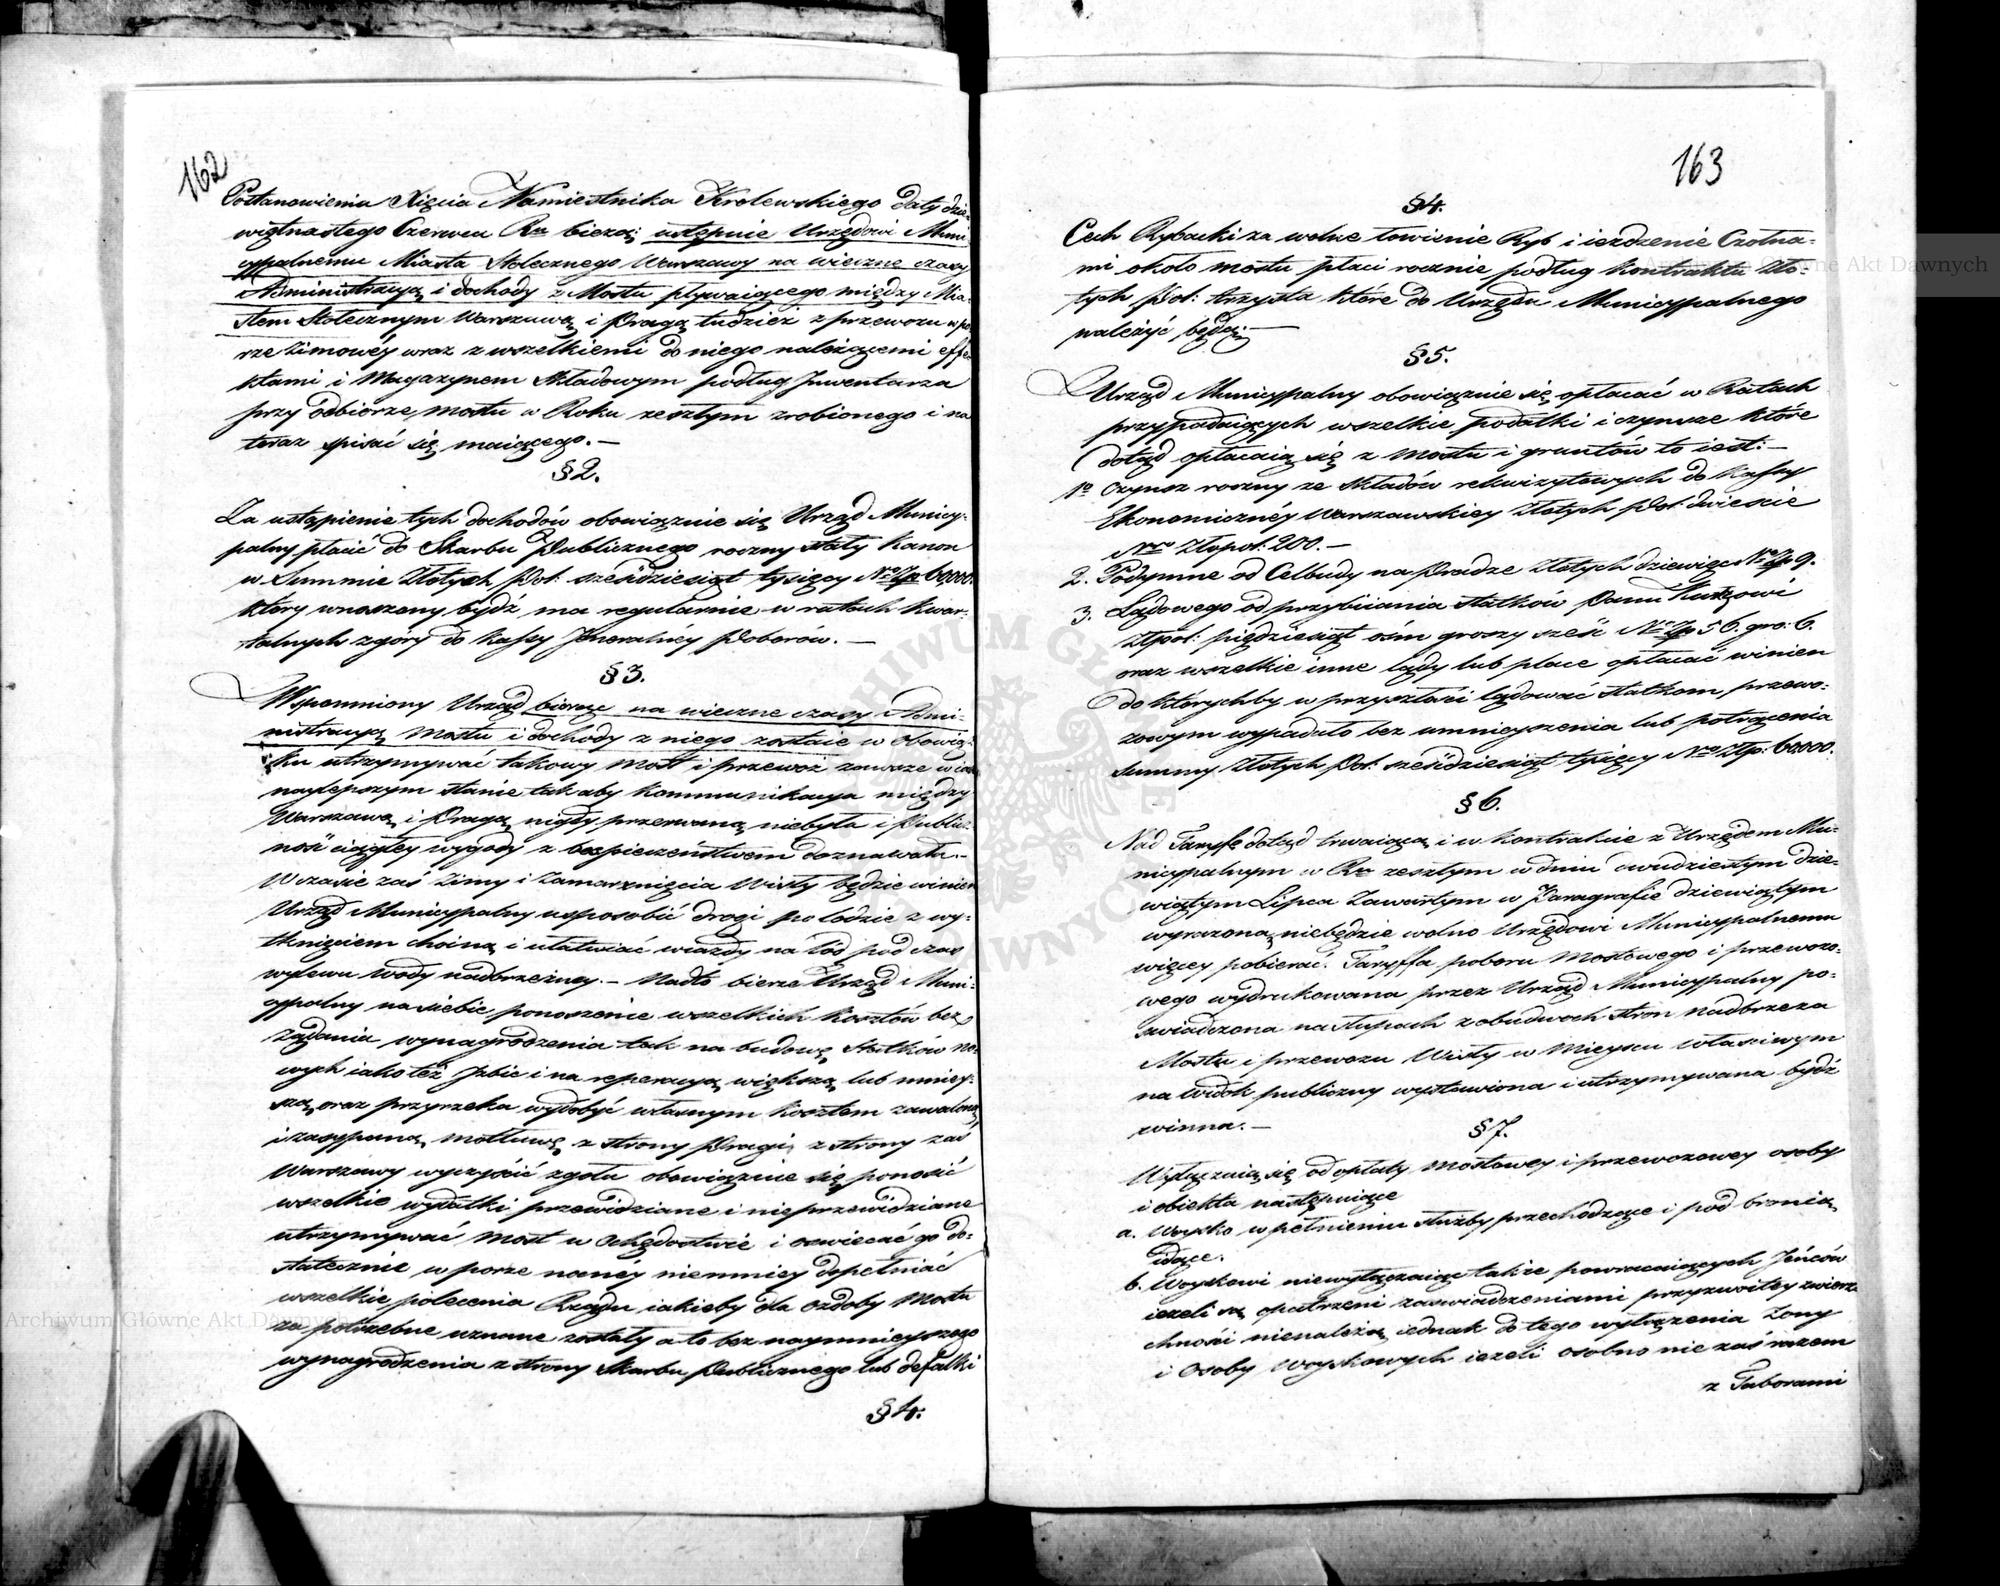 162
Postanowienia Xięcia Namiestnika Krolewskiego daty dzie-
więtnastego Czerwca Ru bieżą: ustępuie Urzędowi Muni-
cypalnemu Miasta Stołecznego Warszawy na wieczne czasy
Administracyą i dochody z Mostu pływaiącego między Mia-
stem Stołecznym Warszawą i Pragą tudzież z przewozu w po-
rze zimowéy wraz z wszelkiemi do niego należącemi effe-
ktami i Magazynem Składowym podług Inwentarza
przy odbiorze mostu w Roku zeszłym zrobionego i na
teraz spisać się maiącego.—
§ 2.
Za ustąpienie tych dochodów obowiązuie się Urząd Municy-
palny płacić do Skarbu Publicznego roczny stały Kanon
w Summie Złotych Pol: sześćdziesiąt tysięcy No Zp 60000.
ktory wnoszony bydź ma regularnie w ratach kwar-
talnych z góry do Kassy Jeneralnéy Poborów.—
§ 3.
Wspomniony Urząd biorąc na wieczne czasy Admi-
nistracyą Mostu i dochody z niego zostaie w Obowiąz-
ku utrzymywać takowy Most i przewóz zawsze w iak
naylepszym stanie tak aby kommunikacya między
Warszawą i Pragą nigdy przerwaną niebyła iUblicz-
ność ciągłey wygody z bezpieczeństwem doznawała.—
W czasie zaś Zimy i zamarznięcia Wisły będzie winien
Urząd Municypalny usposobić drogi po lodzie z wy-
tknięciem choiną i ułatwiać wiazdy na lód pod czas
wylewu wody nadbrzeżney.— Nadto bierze Urząd Muni-
cypalny na siebie ponoszenie wszelkich kosztów bez
żądania wynagrodzenia tak na budowę Statków no-
wych iako też Jzbic i na reperacyą większą lub mniey-
szą, oraz przyrzeka wydobyć własnym kosztem zawaloną
i zasypaną Mottławę z strony Pragi, z strony zaś
Warszawy wyczyścić zgoła obowiązuie się ponosić
wszelkie wydatki przewidziane i nieprzewidziane
utrzymywać Most w Ochędostwie i oswiecać go do-
statecznie w porze nocnéy niemniey dopełniać
wszelkie polecenia Rządu iakieby dla ozdoby Mostu
za potrzebne uznane zostały a to bez naymnieyszego
wynagrodzenia z strony Skarbu Publicznego lub defalki
§ 4.
163
§ 4.
Cech Rybacki za wolne łowienie Ryb i ieżdzenie Czołna-
mi około mostu płaci rocznie podług kontraktu Zło-
tych Pol: trzysta które do Urzędu Municypalnego
należyć będą:—
§ 5.
Urząd Municypalny obowiązuie się opłacać w Ratach
przypadaiących wszelkie podatki i czynsze które
dotąd opłacaią się z Mostu i gruntów to iest:—
1o Czynsz roczny ze składów rekwizytowych do Kassy
Ekonomicznéy Warszawskiey Złotych Pol: dwieście
Nro Złpol: 200.—
2. Podymne od Celbudy na Pradze Złotych dziewięć No Zp 9.
3. Lądowego od przybiiania statków Panu Kurtzowi
Złpol: pięćdziesiąt ośm groszy sześć No Zp 56. gro: 6.
oraz wszelkie inne lądy lub place opłacać winien
do którychby w przyszłości lądować statkom przewo-
zowym wypadało bez umnieyszenia lub potrącenia
Summy Złotych Pol: sześćdziesiąt tysięcy No Złp: 60000.
§ 6.
Nad Taryfę dotąd trwaiącą i w kontrakcie z Urzędem Mu-
nicypalnym w Ru zeszłym w dniu dwudziestym dzie-
wiątym Lipca zawartym w Paragrafie dziewiątym
wyrażoną niebędzie wolno Urzędowi Municypalnemu
więcey pobierać. Taryffa poboru Mostowego i przewozo-
wego wydrukowana przez Urząd Municypalny po-
świadczona na słupach z obudwóch stron nadbrzeża
Mostu i przewozu Wisły w Mieyscu właściwym
na widok publiczny wystawiona i utrzymywana bydź
winna.—
§ 7.
Wyłączaią się od opłaty Mostowey i przewozowey osoby
i obiekta następuiące
a. Woysko w pełnieniu służby przechodzące i pod bronią
idące.
b. Woyskowi niewyłączaiąc także powracaiących Jeńców
ieżeli są opatrzeni zaświadczeniami przyzwoitey zwierz-
chności nienależą iednak do tego wyłączenia Żony
i Osoby Woyskowych ieżeli osobno nie zaś razem
z Taborami
Archiwum Główne Akt Dawnych
Archiwum Główne Akt Dawnych